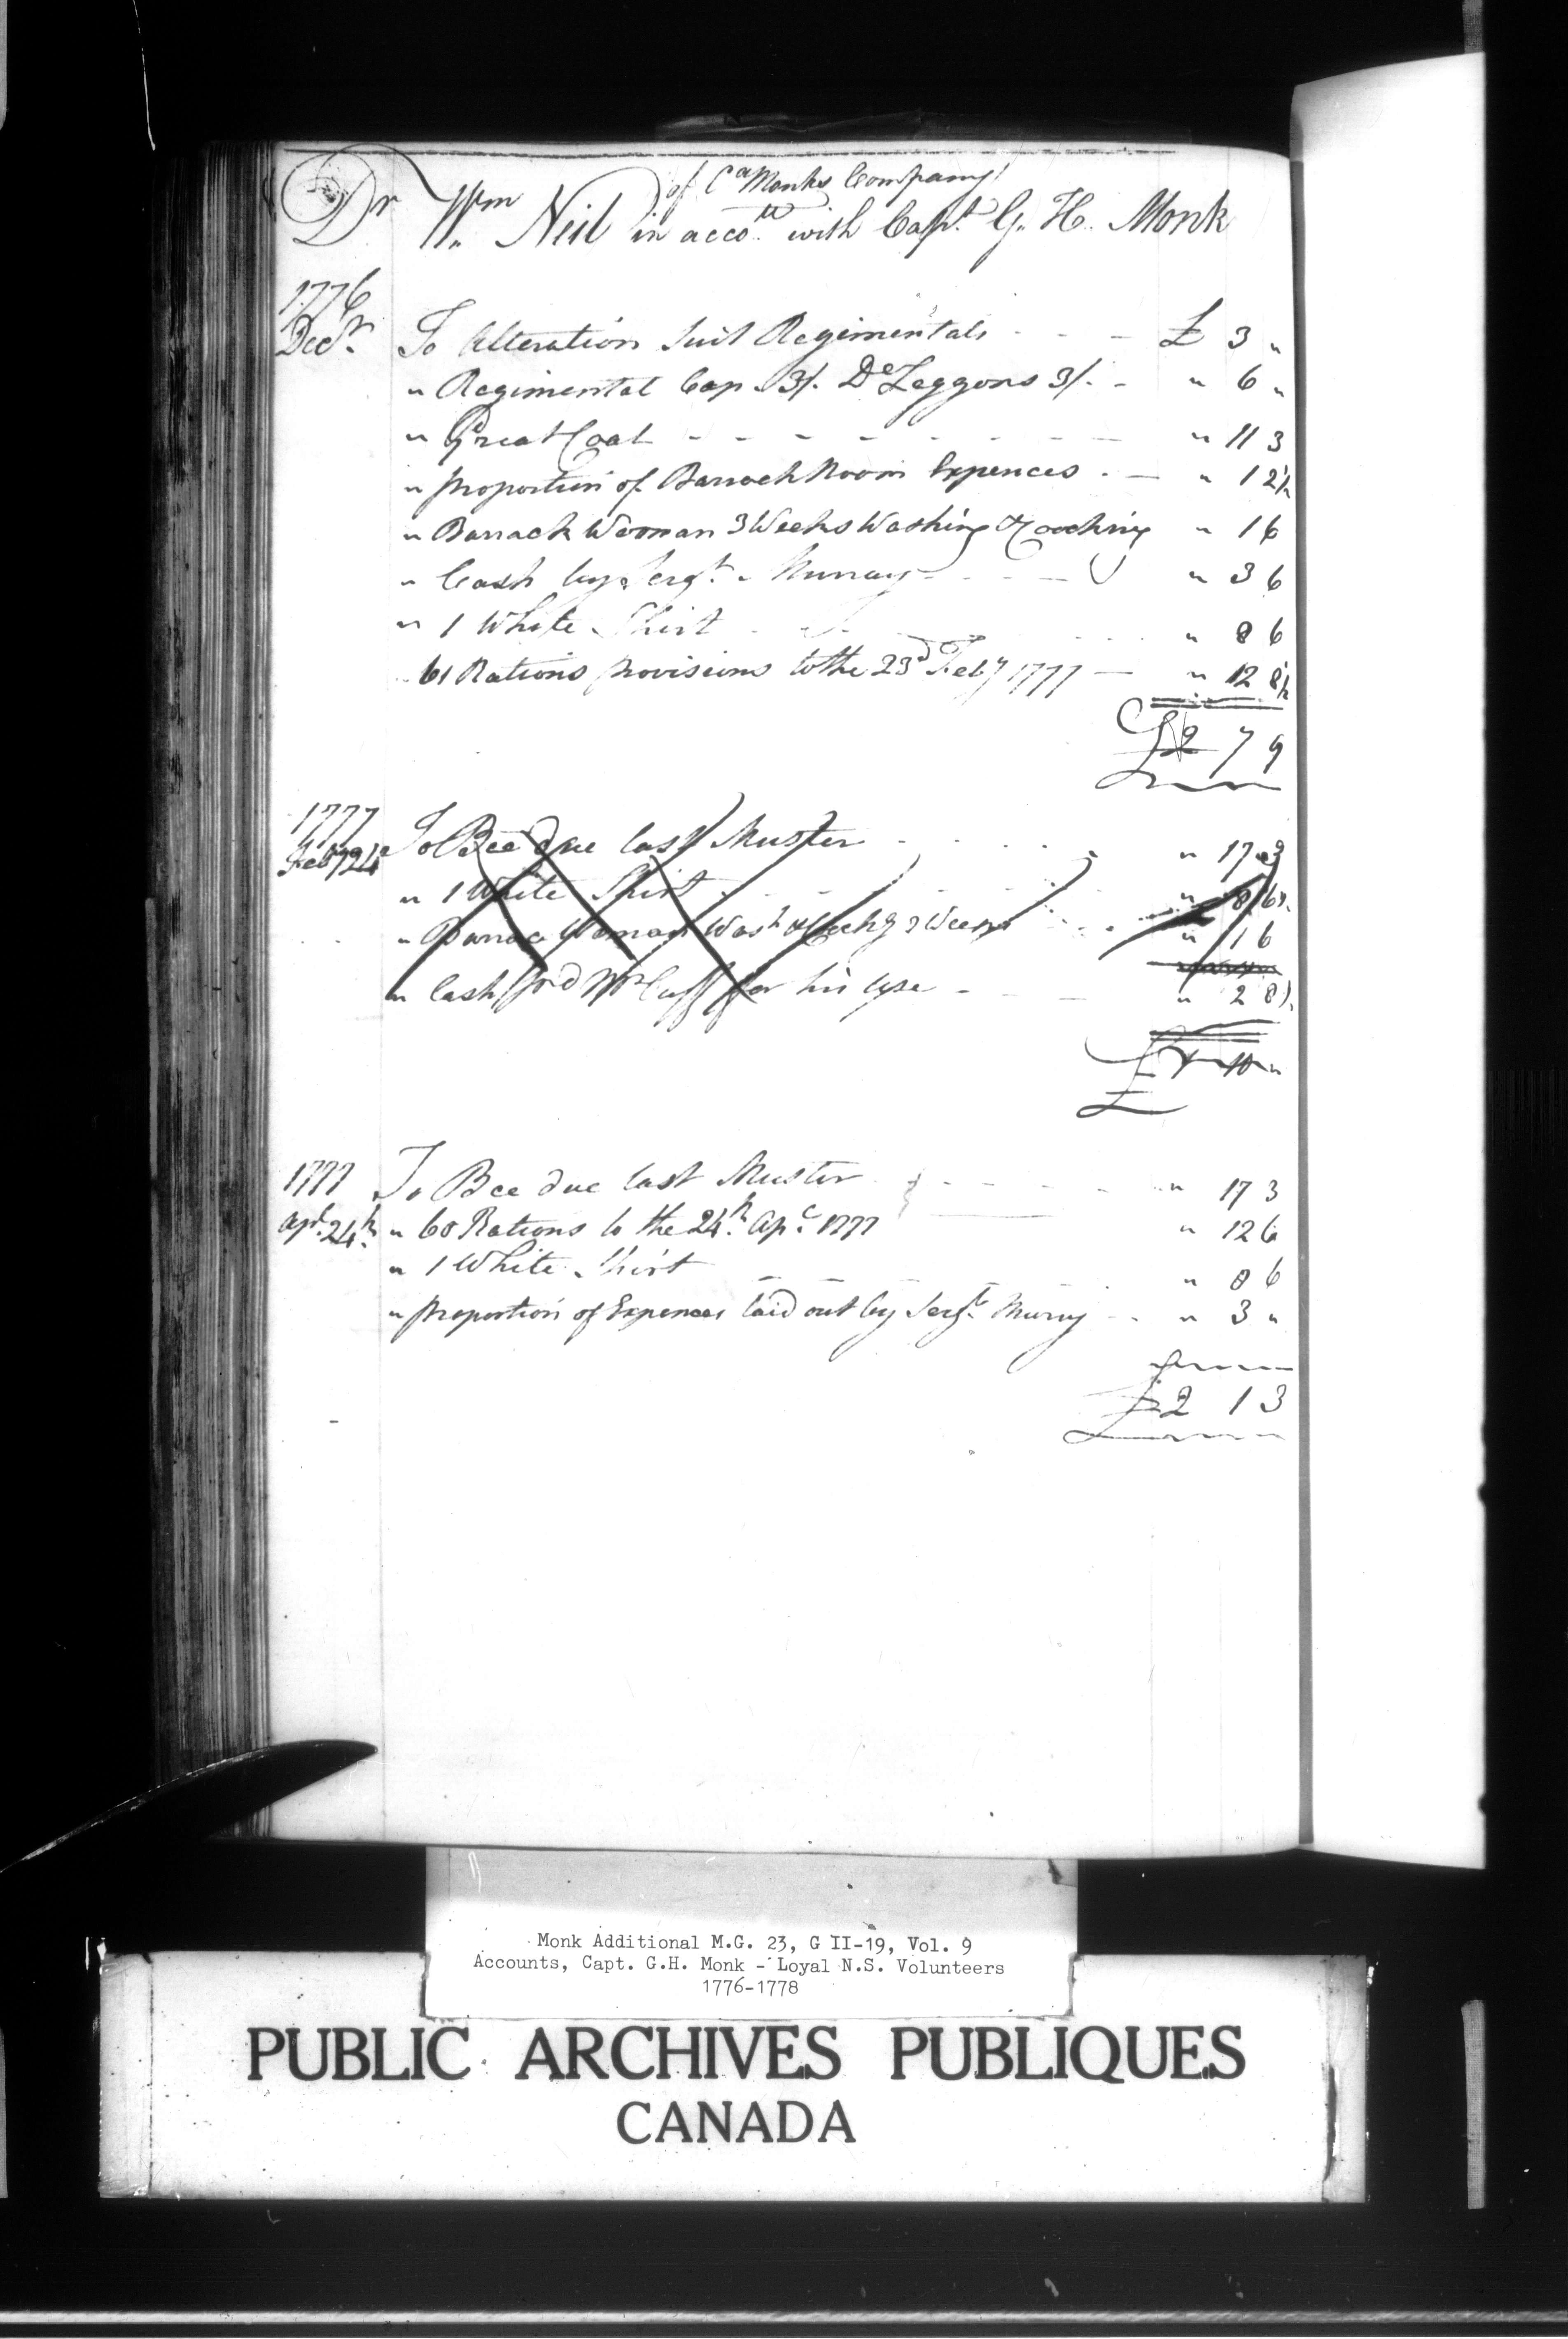 of Ca Monks Company
Dr Wm Neil in acco.tt with Capt. G. H. Monk
1776
Decr. To Alteration Suit Regimentals - - - £ 3 "
" Regimental Cap 3/. Do Leggons 3/. - " 6 "
" Great Coat - - - - - - - " 11 3
" proportion of Barrack Room Expences . - " 1 2½
" Barrack Woman 3 Weeks Washing & Cooking " 1 6
" Cash by Sergt. Murray - - - - " 3 6
" 1 White Shirt " 8 6
61 Rations provisions to the 23d Feby 1777 - " 12 8½
£2 7 9
1777
Feby 24 To Bce due last Muster " 17 3
" 1 White Shirt " 8 6
" Barrac Woman Wash & Cookg 3 Weeks " 1 6
" Cash pd Mr Cuff for his use - - - " 2 8
£1 10 "
1777 To Bce due last Muster - - - - " 17 3
apl. 24th " 60 Rations to the 24th. Apl. 1777 " 12 6
" 1 White Shirt " 8 6
" proportion of Expences laid out by Sergt. Murry - - " 3 "
£2 1 3
Monk Additional M.G. 23, G II-19, Vol. 9
Accounts, Capt. G.H. Monk - Loyal N.S. Volunteers
1776-1778
PUBLIC ARCHIVES PUBLIQUES
CANADA